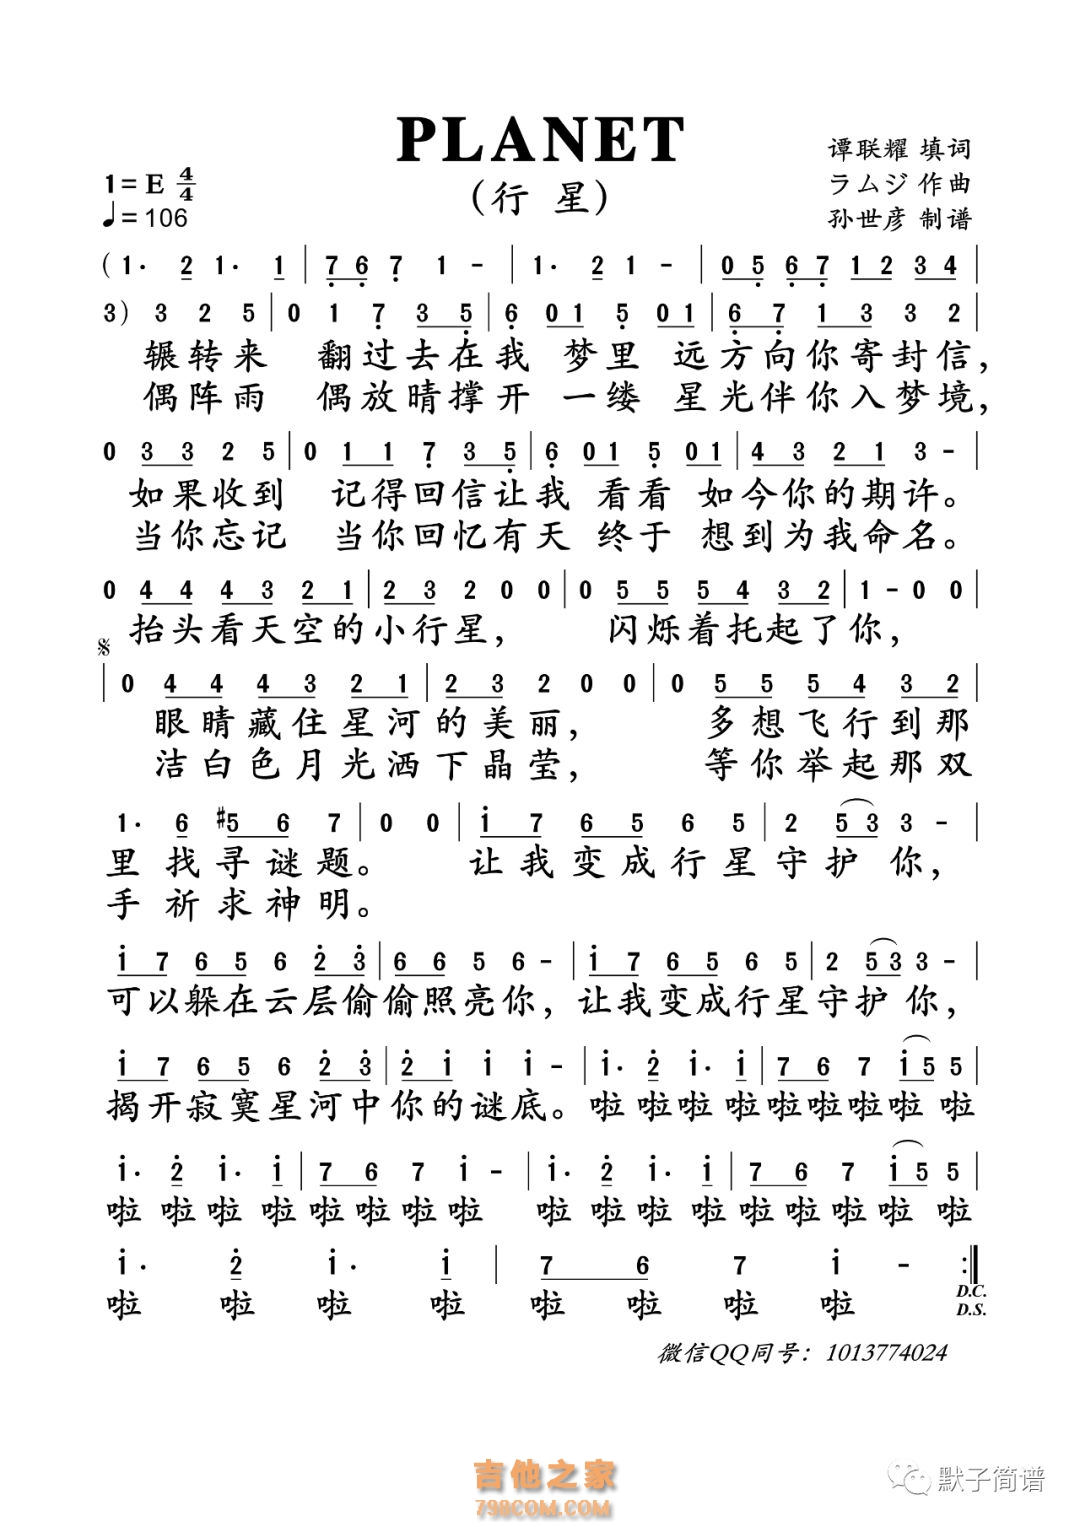 PLANET
(行 星)
1=E 4/4
♩=106
谭联耀 填词
ラムジ 作曲
孙世彦 制谱
(1· 2 1· 1 | 7 6 7 1 - | 1· 2 1 - | 0 5 6 7 1 2 3 4 |
3) 3 2 5 | 0 1 7 3 5 | 6 0 1 5 0 1 | 6 7 1 3 3 2 |
辗转来 翻过去在我 梦里 远方向你寄封信，
偶阵雨 偶放晴撑开 一缕 星光伴你入梦境，
0 3 3 2 5 | 0 1 1 7 3 5 | 6 0 1 5 0 1 | 4 3 2 1 3 - |
如果收到 记得回信让我 看看 如今你的期许。
当你忘记 当你回忆有天 终于 想到为我命名。
0 4 4 4 3 2 1 | 2 3 2 0 0 | 0 5 5 5 4 3 2 | 1 - 0 0 |
抬头看天空的小行星， 闪烁着托起了你，
𝄋
| 0 4 4 4 3 2 1 | 2 3 2 0 0 | 0 5 5 5 4 3 2 |
眼睛藏住星河的美丽， 多想飞行到那
洁白色月光洒下晶莹， 等你举起那双
1· 6 #5 6 7 | 0 0 | 1 7 6 5 6 5 | 2 5 3 3 - |
里 找寻谜题。 让我变成行星守护 你，
手 祈求神明。
1 7 6 5 6 2 3 | 6 6 5 6 - | 1 7 6 5 6 5 | 2 5 3 3 - |
可以躲在云层偷偷照亮你，让我变成行星守护 你，
1 7 6 5 6 2 3 | 2 1 1 1 - | 1· 2 1· 1 | 7 6 7 1 5 5 |
揭开寂寞星河中你的谜底。啦 啦啦 啦啦啦啦啦 啦
1· 2 1· 1 | 7 6 7 1 - | 1· 2 1· 1 | 7 6 7 1 5 5 |
啦 啦啦 啦啦啦啦啦 啦 啦啦 啦啦啦啦啦 啦
1· 2 1· 1 | 7 6 7 1 - :‖
啦 啦 啦 啦 啦 啦 啦 啦
D.C.
D.S.
微信QQ同号：1013774024
吉他之家
798COM.COM
默子简谱